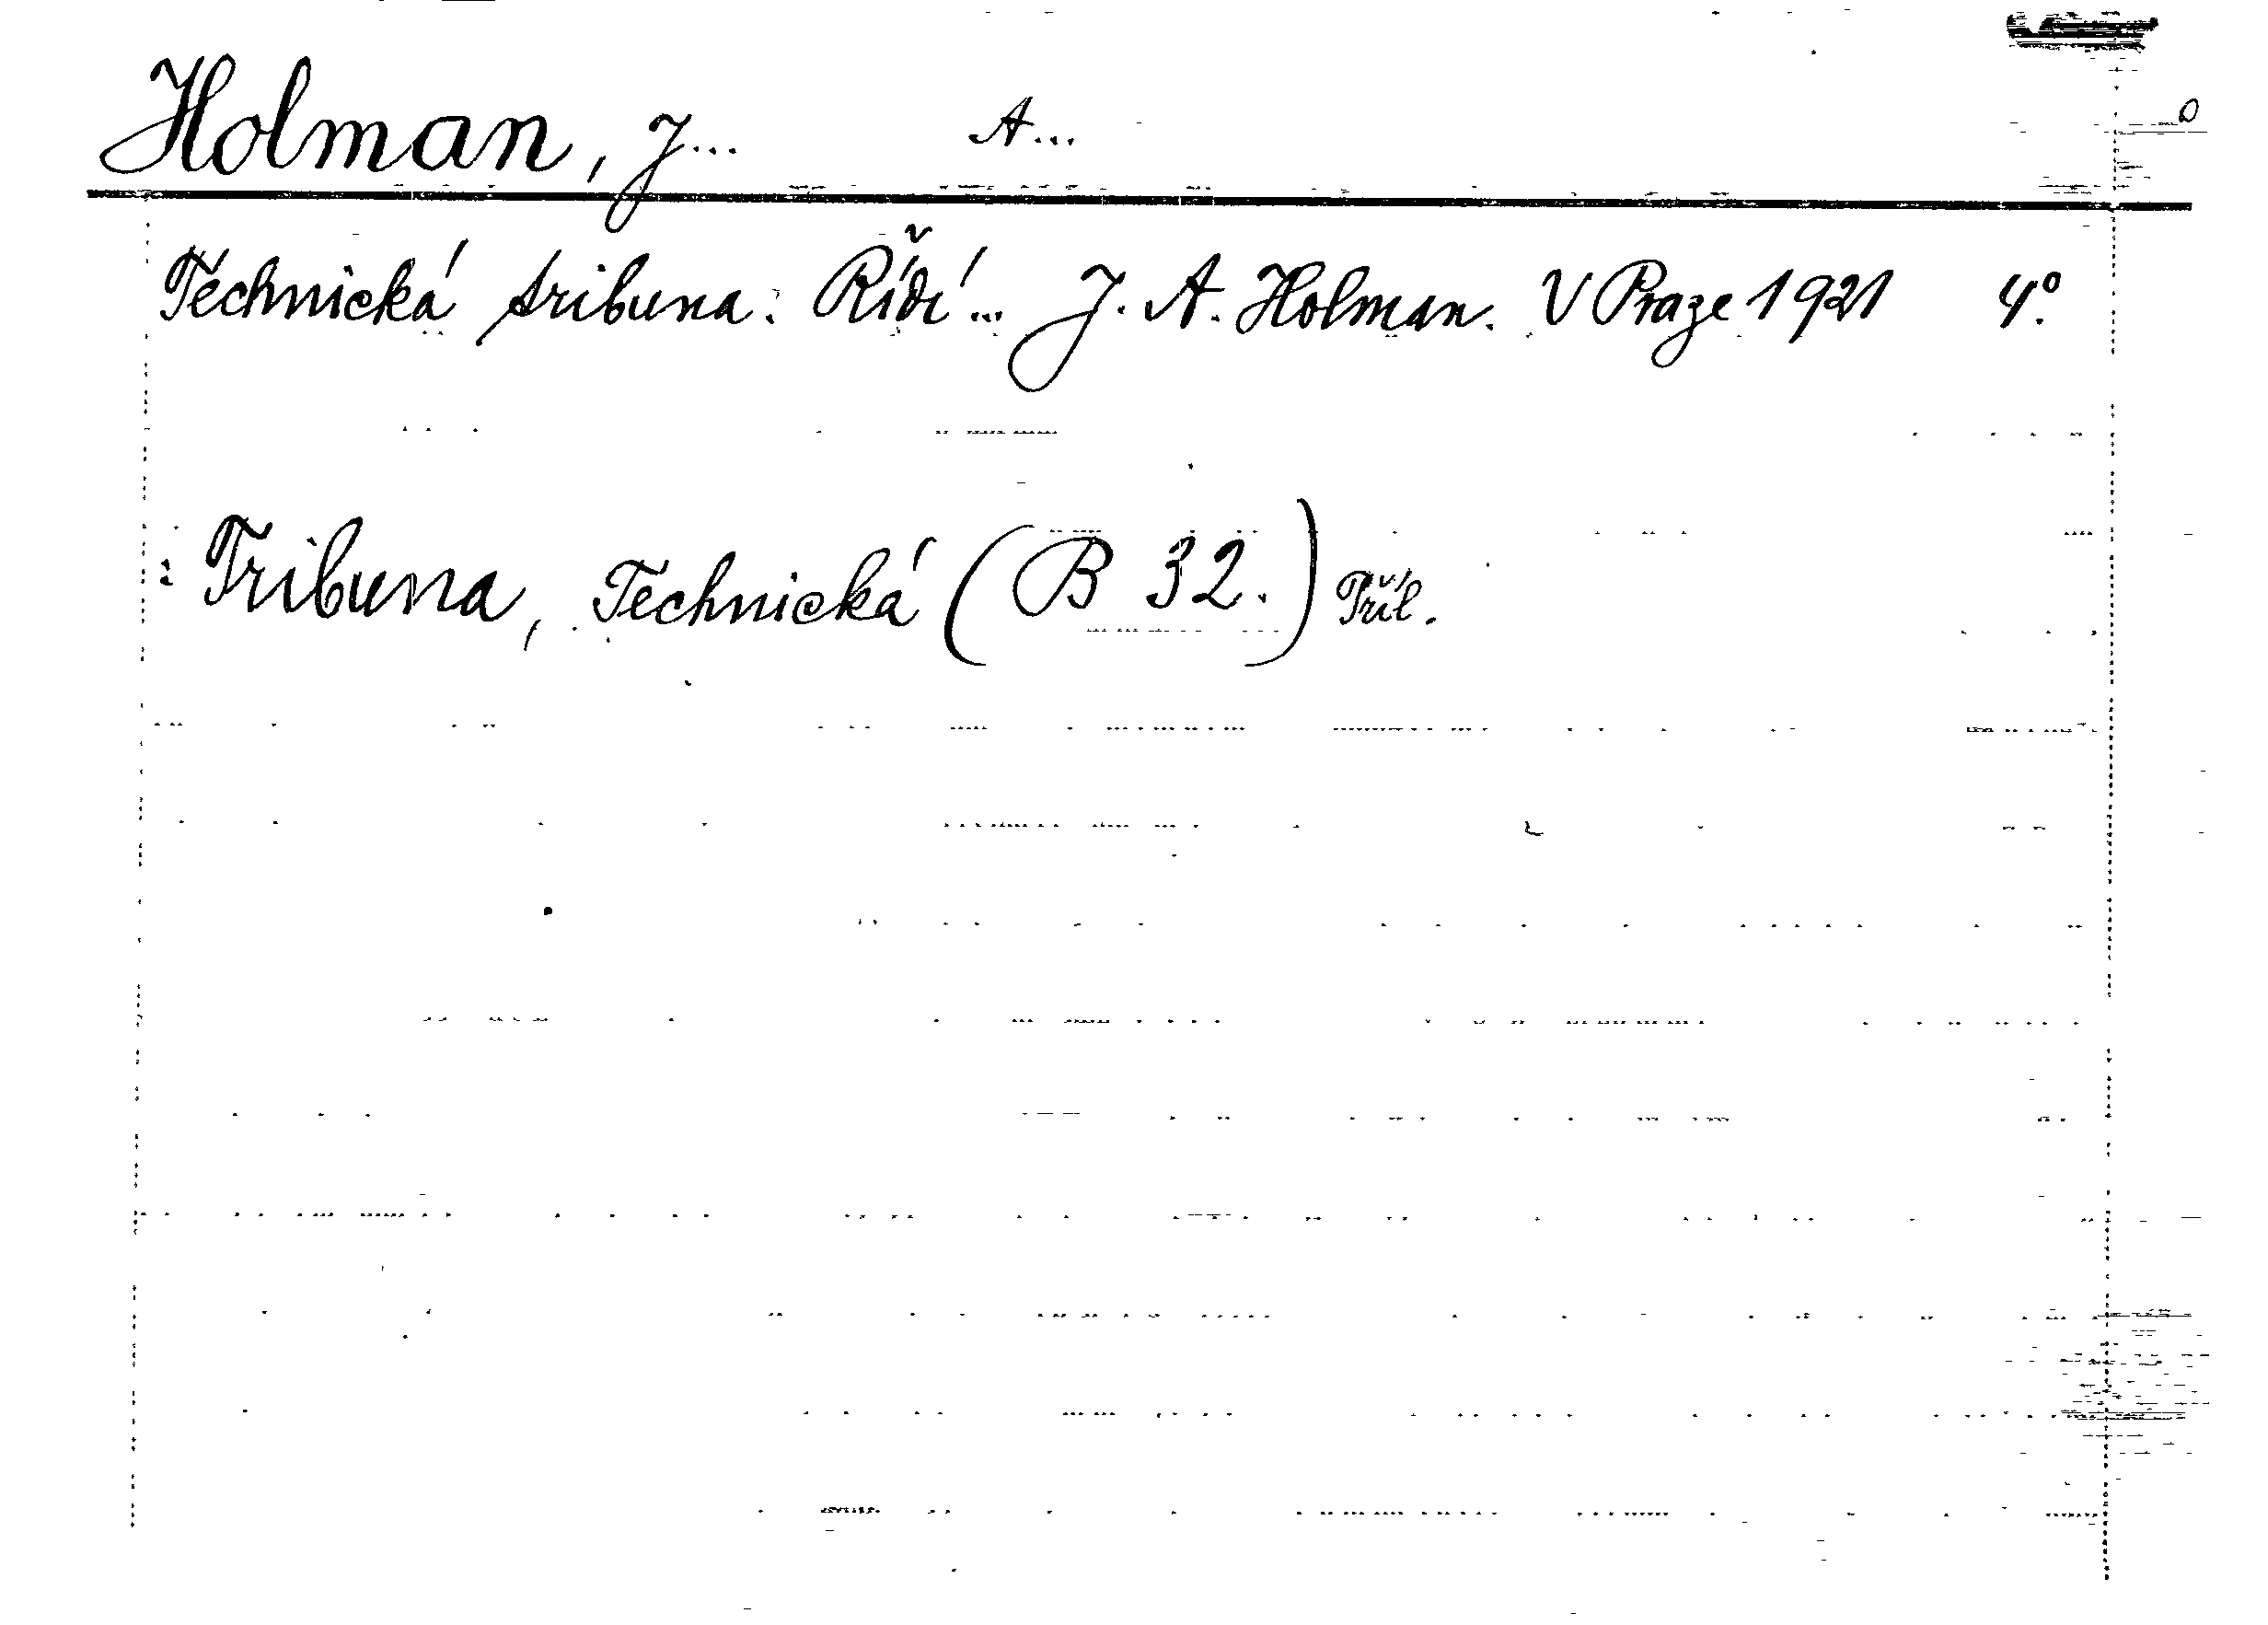 Holman, J... A...
Technická tribuna: Řídí... J. A. Holman. V Praze 1921 4º.
: Tribuna, Technická (B 32.) Příl.